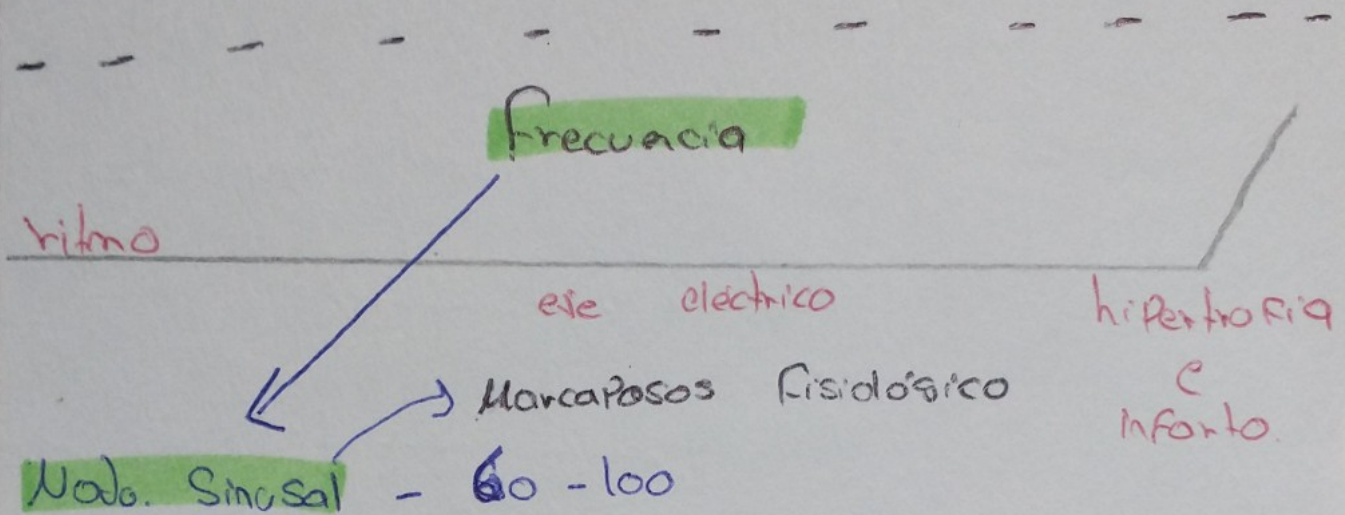 Frecuencia
ritmo
eje eléctrico
hipertrofia
e
infarto.
Marcapasos fisiológico
Nodo. Sinusal - 60 - 100